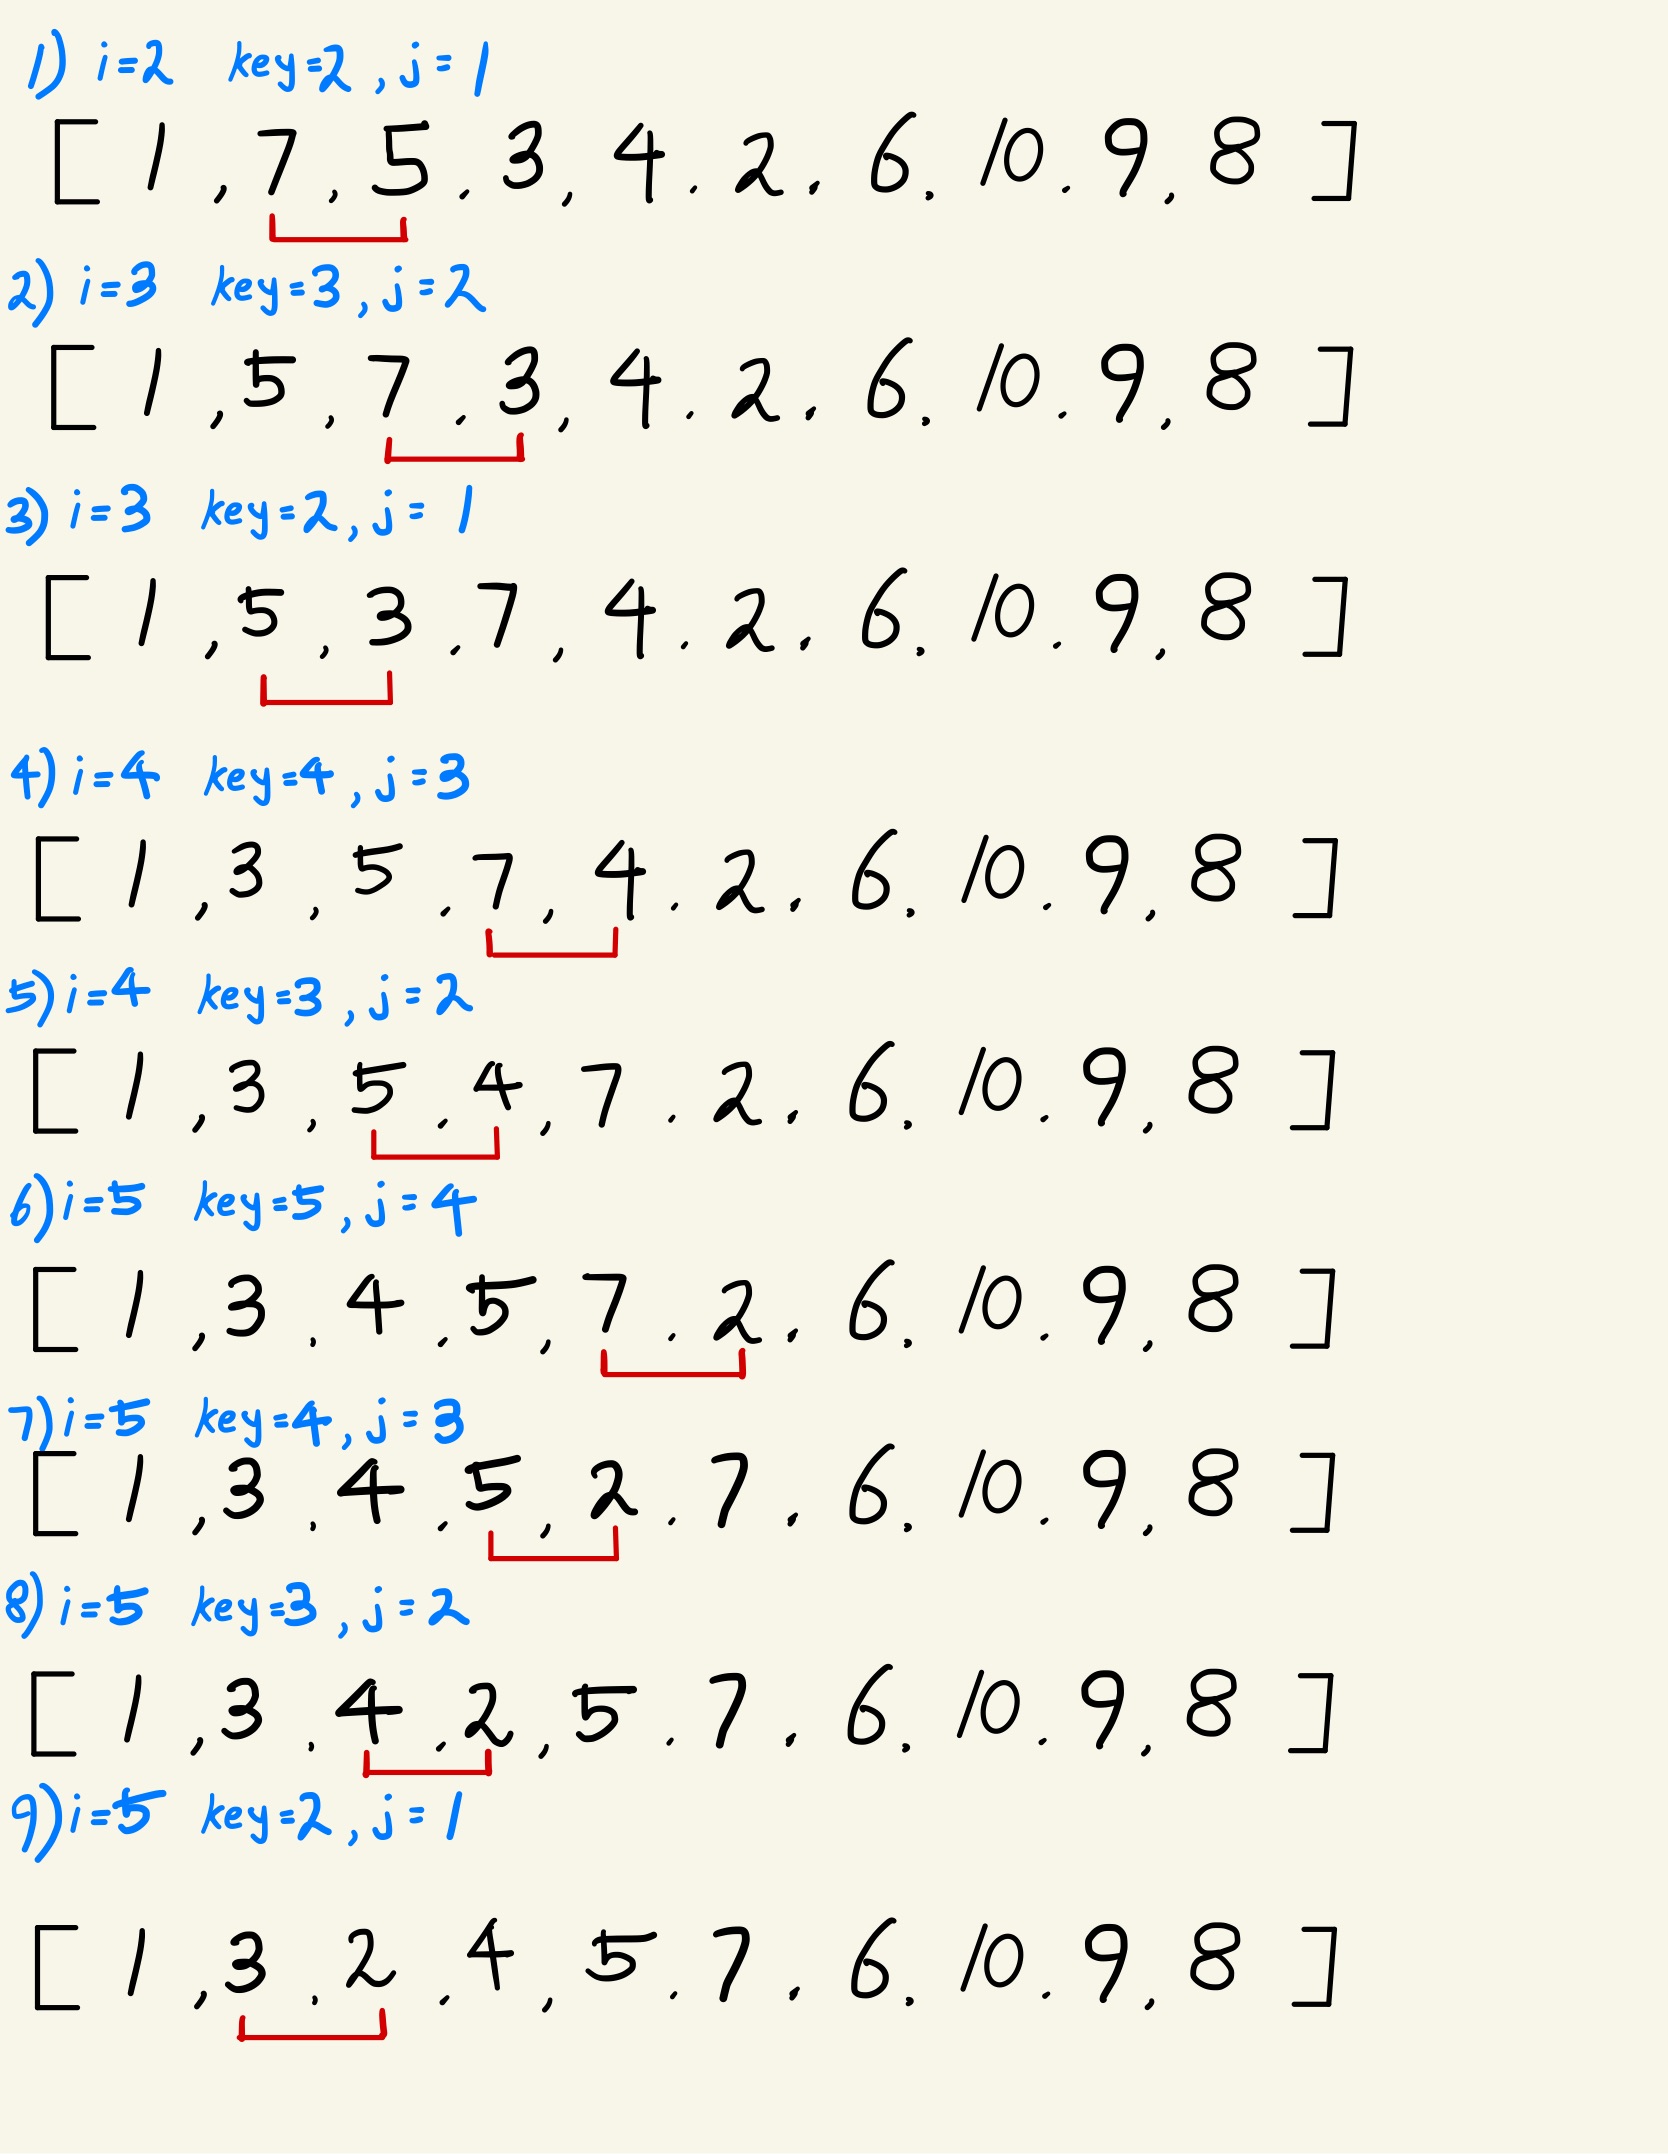 1) i=2 key=2, j=1
[ 1, 7, 5. 3, 4. 2. 6. 10. 9, 8 ]
2) i=3 key=3, j=2
[ 1, 5, 7. 3, 4. 2. 6. 10. 9, 8 ]
3) i=3 key=2, j=1
[ 1, 5, 3. 7, 4. 2. 6. 10. 9, 8 ]
4) i=4 key=4, j=3
[ 1, 3, 5. 7, 4. 2. 6. 10. 9, 8 ]
5) i=4 key=3, j=2
[ 1, 3, 5. 4, 7. 2. 6. 10. 9, 8 ]
6) i=5 key=5, j=4
[ 1, 3. 4. 5, 7. 2. 6. 10. 9, 8 ]
7) i=5 key=4, j=3
[ 1, 3. 4. 5, 2. 7. 6. 10. 9, 8 ]
8) i=5 key=3, j=2
[ 1, 3. 4. 2, 5. 7. 6. 10. 9, 8 ]
9) i=5 key=2, j=1
[ 1, 3. 2. 4, 5. 7. 6. 10. 9, 8 ]